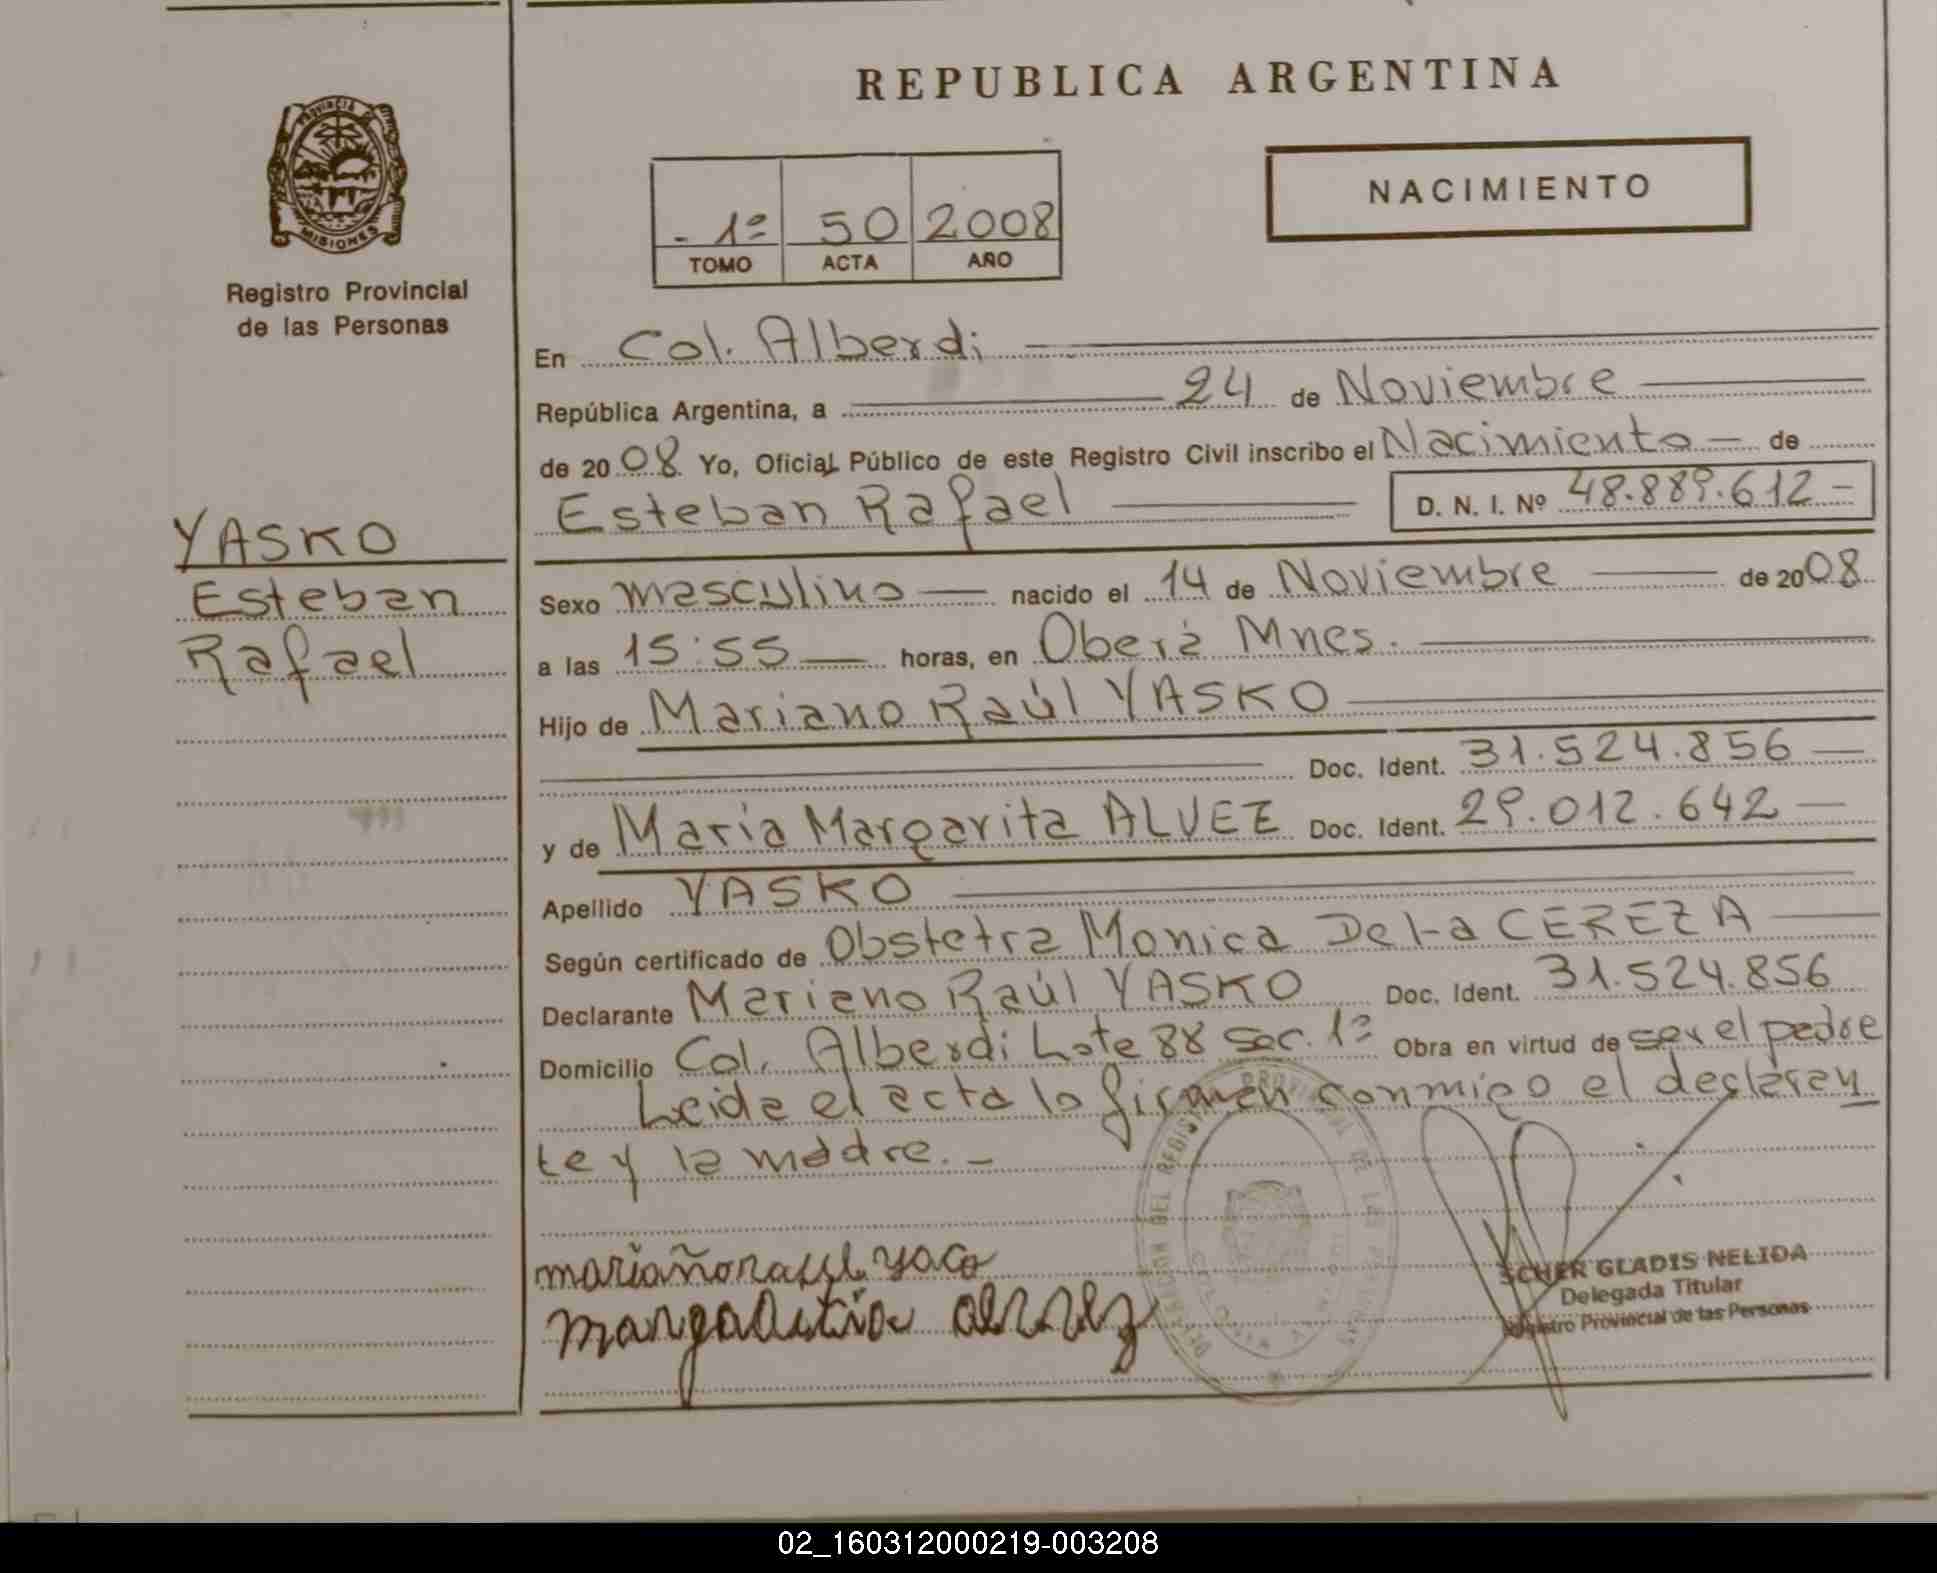 REPUBLICA ARGENTINA
PROVINCIA DE
MISIONES
Registro Provincial
de las Personas
NACIMIENTO
- 1º 50 2008
TOMO ACTA AÑO
En Col. Alberdi
República Argentina, a 24 de Noviembre
de 2008 Yo, Oficial Público de este Registro Civil inscribo el Nacimiento de
Esteban Rafael D. N. I. Nº 48.889.612
YASKO
Esteban
Rafael
Sexo masculino nacido el 14 de Noviembre de 2008
a las 15:55 horas, en Oberá Mnes.
Hijo de Mariano Raúl YASKO
Doc. Ident. 31.524.856
y de María Margarita ALVEZ Doc. Ident. 29.012.642
Apellido YASKO
Según certificado de Obstetra Monica De La CEREZA
Declarante Mariano Raúl YASKO Doc. Ident. 31.524.856
Domicilio Col. Alberdi Lote 88 Sec. 1ª Obra en virtud de ser el padre
Leida el acta la firman conmigo el declaran
te y la madre. -
SCHER GLADIS NELIDA
Delegada Titular
Registro Provincial de las Personas
02_160312000219-003208